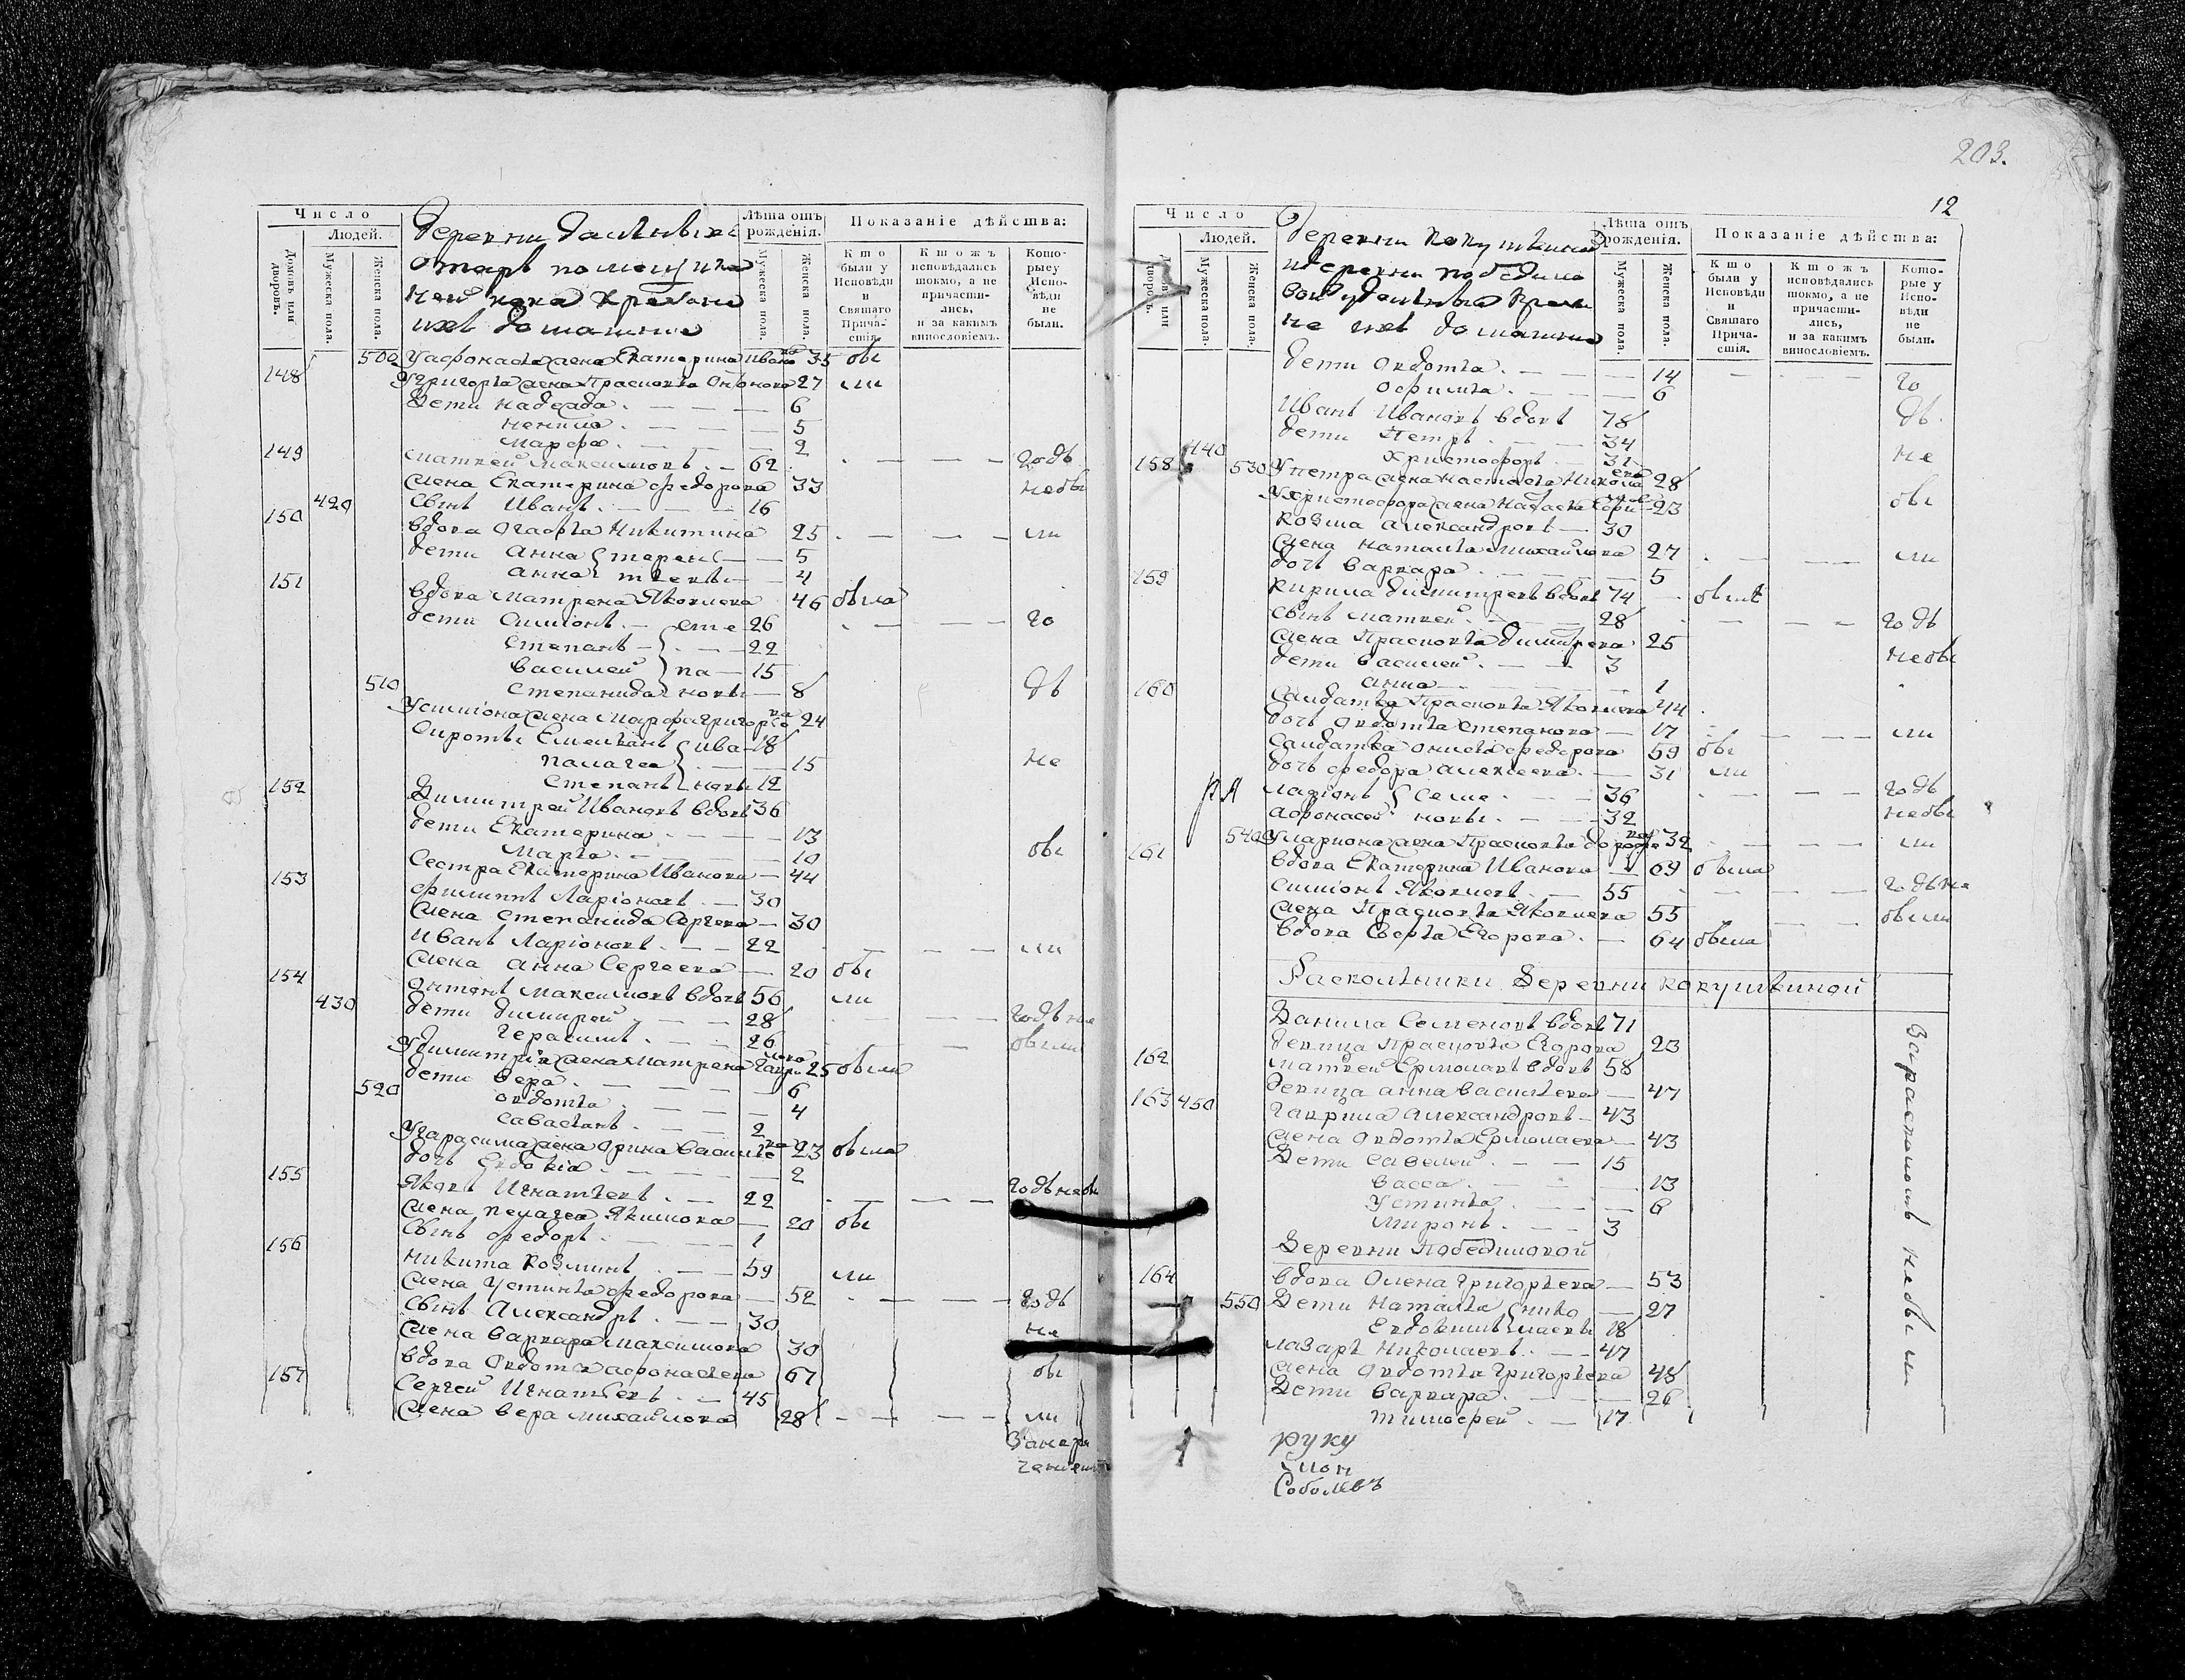 Число
Людей.
Домовъ или дворовъ.
Мужеска пола.
Женска пола.
Лѣта отъ рождения.
Мужеска пола.
Женска пола.
Показаніе дѣйства:
Кто были у Исповѣди и Святаго Прича-стія.
Ктожъ исповѣдались токмо, а не причасти-лись, и за какимъ винословіемъ.
Кото-рые у Испо-вѣди не были.
Деревни
помещика
500 Уафонасья жена Екатерина Иванова 35 бы
148 Угригорья жена Прасковья 27 ли
Дети Надежда 6
Ненила 5
Марфа 2
149 Матвей Максимовъ 62 годъ
жена Екатерина Федорова 33 небы
420 сынъ Иванъ 16
150 вдова Агафья Никитина 25 ли
дети Анна 5
Анна 4
151 вдова Матрена Яковлева 46 была
дети Симионъ 26 го
Степанъ 22
Василей 15
510 Степанида 8 дъ
Усимиона жена Марфа Григорьева 24
Сироты Емельянъ Ива 18
Палагея 15 не
Степанъ новы 12
152 Димитрей Ивановъ вдовъ 36
дети Екатерина 13
Марья 10 бы
Сестра Екатерина Иванова 44
153 Филиппъ Ларіоновъ 30
жена Степанида Сергева 30
Иванъ Ларіоновъ 22 ли
жена Анна Сергеева 20 бы
154 Антонъ Максимовъ вдовъ 56 ли
430 дети Димитрей 28 годъ не
Герасимъ 26 были
Удимитрія жена Матрена Гаврилова 25 была
дети Вера 6
520 Авдотья 4
Савастьянъ 2
Угарасима жена Орина Васильева 23 была
дочь Евдокія 2
155 Яковъ Игнатьевъ 22 годъ небы
жена Пелагея Якимова 20 бы
сынъ Федоръ 1
156 Никита Козминъ 59 ли
жена Устинья Федорова 52 годъ
сынъ Александръ 30 не
жена Варвара Максимова 30
вдова Авдотья Афонасьева 67 бы
157 Сергей Игнатьевъ 45
жена Вера Михайлова 28 ли
203.
12
Число
Людей.
Домовъ или дворовъ.
Мужеска пола.
Женска пола.
Лѣта отъ рождения.
Мужеска пола.
Женска пола.
Показаніе дѣйства:
Кто были у Исповѣди и Святаго Прича-стія.
Ктожъ исповѣдались токмо, а не причасти-лись, и за какимъ винословіемъ.
Кото-рые у Испо-вѣди не были.
Деревни Кокушкина
деревни
не ихъ домашние
дети Авдотья 14 го
Офимья 6
Иванъ Ивановъ вдовъ 78 дъ
дети Петръ 34
440 Христофоръ 31 не
158 530 Упетра жена Настасья Николаева 28
Ухристофора жена Настасья 23 бы
Козма Александровъ 30
жена Наталья Михайлова 27 ли
дочь Варвара 5
159 Кирила Димитревъ вдовъ 74 былъ
сынъ Матвей 28 годъ
жена Прасковья Димитрева 25
дети Василей 3 небы
Анна 1
160 Салдатка Прасковья Яковлева 44
дочь Авдотья Степанова 17 ли
Салдатка Анисья Федорова 59 бы
дочь Федора Алексеева 31 ли
Ларіонъ Семе 36 годъ
Афонасей новы 32 небы
161 540 Улариона жена Прасковья 32 ли
вдова Екатерина Иванова 69 была
Симіонъ Яковлевъ 55 годъ не
жена Прасковья Яковлева 55 были
вдова Егорова 64 была
Раскольники Деревни Кокушкиной
Данила Семеновъ вдовъ 71
девица Прасковья Егорова 23
162 Матвей Ермолаевъ вдовъ 58
девица Анна Васильева 47
163 450 Гаврила Александровъ 43
жена Авдотья Ермолаева 43
Дети Савелей 15
Васса 13
Устинья 6
Миронъ 3
Деревни Победимовой
164 вдова Олена Григорьева 53
550 Дети Наталья Нико 27
Евдокимъ лаевы 18
Лазарь Николаевъ 47
жена Авдотья Григорьева 48
Дети Варвара 26
Тимофей 17
За расколомъ небыли
руку
Соболевъ